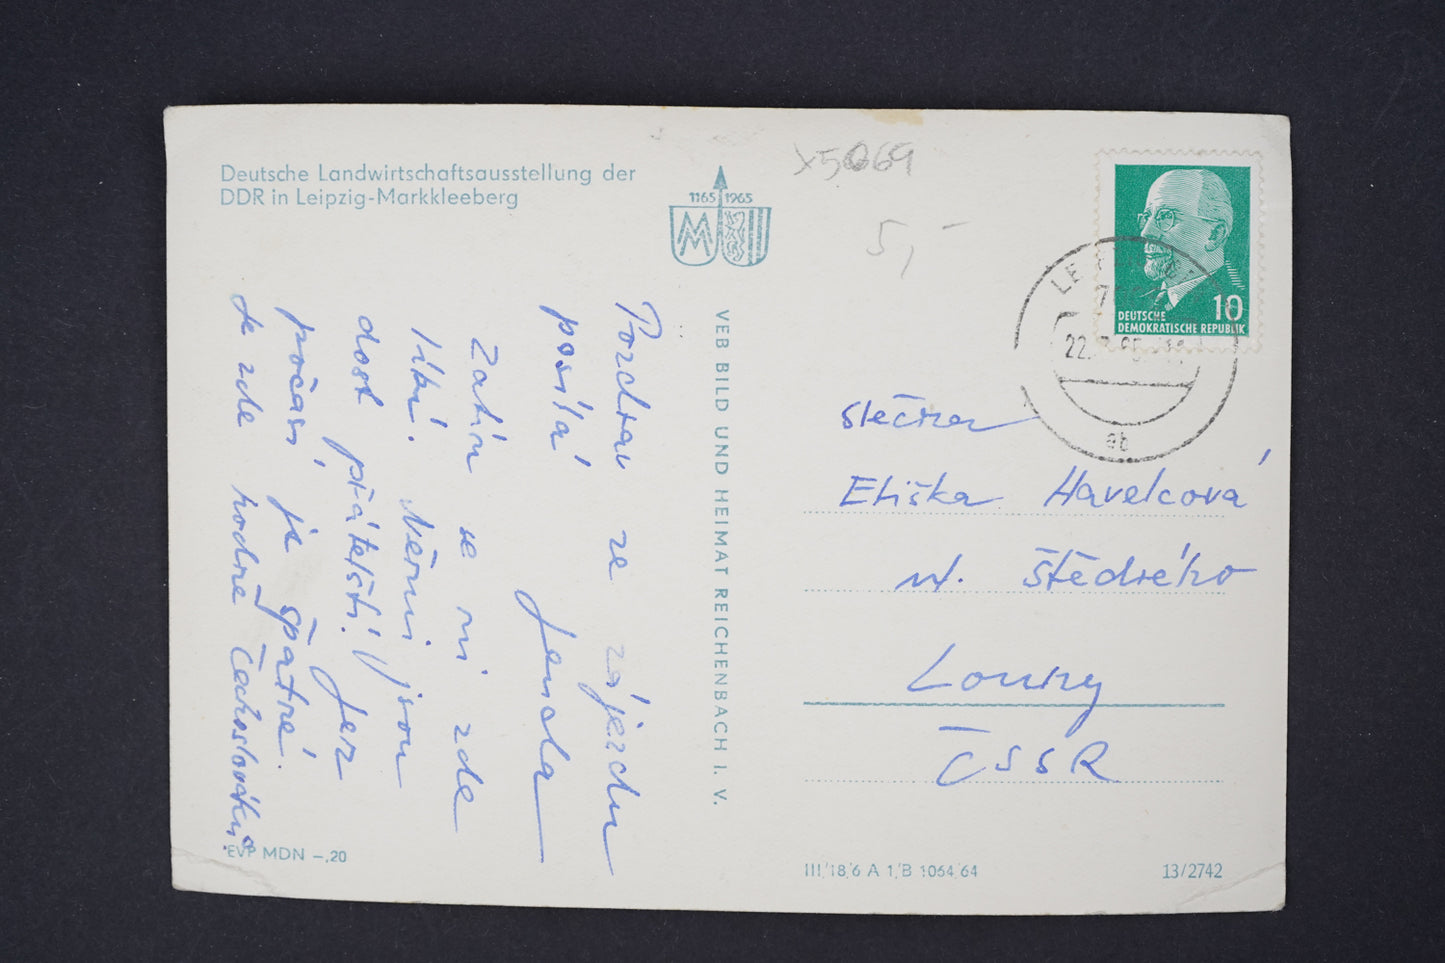 Deutsche Landwirtschaftsausstellung der
DDR in Leipzig-Markkleeberg
1165 1965
MM
X5069
5,-
10
DEUTSCHE
DEMOKRATISCHE REPUBLIK
22.
ab
VEB BILD UND HEIMAT REICHENBACH I. V.
Pozdrav ze zájezdu
posílá Jenda
Zatím se mi zde
líbí. Němci jsou
dost přátelští! Jen
počasí je špatné.
Je zde hodně Čechoslováků.
slečna
Eliška Havelcová
ul. Štědrého
Louny
ČSSR
EVP MDN –,20
III/18/6 A 1/B 1064/64
13/2742